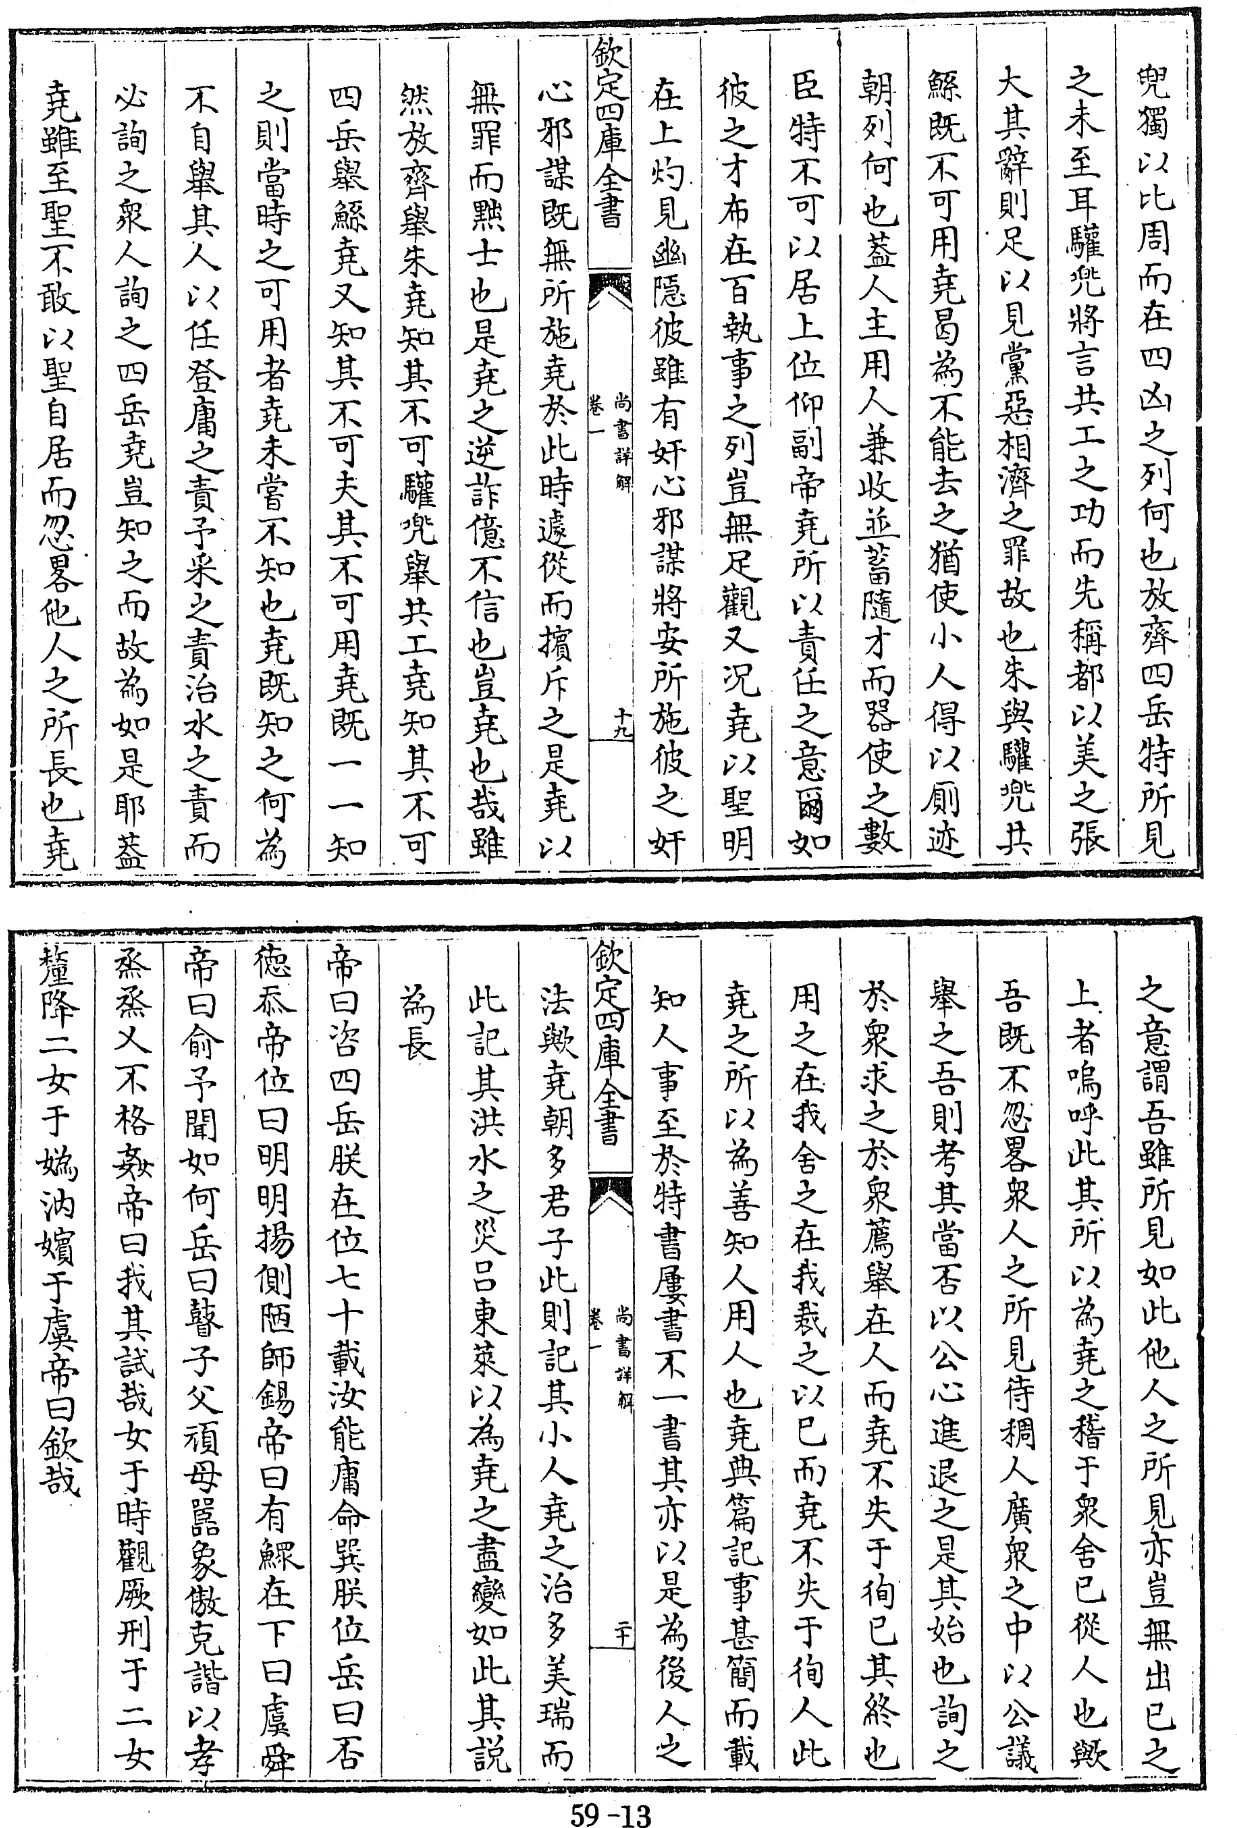 兜獨以比周而在四凶之列何也放齊四岳特所見
之未至耳驩兜將言共工之功而先稱都以美之張
大其辭則足以見黨惡相濟之罪故也朱與驩兜共
鯀既不可用堯曷為不能去之猶使小人得以廁迹
朝列何也蓋人主用人兼收並蓄隨才而器使之數
臣特不可以居上位仰副帝堯所以責任之意爾如
彼之才布在百執事之列豈無足觀又况堯以聖明
在上灼見幽隱彼雖有奸心邪謀將安所施彼之奸
欽定四庫全書
尚書詳解
卷一
十九
心邪謀既無所施堯於此時遽從而擯斥之是堯以
無罪而黜士也是堯之逆詐億不信也豈堯也哉雖
然放齊舉朱堯知其不可驩兜舉共工堯知其不可
四岳舉鯀堯又知其不可夫其不可用堯既一一知
之則當時之可用者堯未嘗不知也堯既知之何為
不自舉其人以任登庸之責予采之責治水之責而
必詢之衆人詢之四岳堯豈知之而故為如是耶蓋
堯雖至聖不敢以聖自居而忽畧他人之所長也堯
之意謂吾雖所見如此他人之所見亦豈無出已之
上者嗚呼此其所以為堯之稽于衆舍已從人也歟
吾既不忽畧衆人之所見待稠人廣衆之中以公議
舉之吾則考其當否以公心進退之是其始也詢之
於衆求之於衆薦舉在人而堯不失于徇已其終也
用之在我舍之在我裁之以已而堯不失于徇人此
堯之所以為善知人用人也堯典篇記事甚簡而載
知人事至於特書屢書不一書其亦以是為後人之
欽定四庫全書
尚書詳解
卷一
二十
法歟堯朝多君子此則記其小人堯之治多美瑞而
此記其洪水之災吕東萊以為堯之盡變如此其説
為長
帝曰咨四岳朕在位七十載汝能庸命巽朕位岳曰否
德忝帝位曰明明揚側陋師錫帝曰有鰥在下曰虞舜
帝曰俞予聞如何岳曰瞽子父頑母嚚象傲克諧以孝
烝烝乂不格姦帝曰我其試哉女于時觀厥刑于二女
釐降二女于媯汭嬪于虞帝曰欽哉
59-13